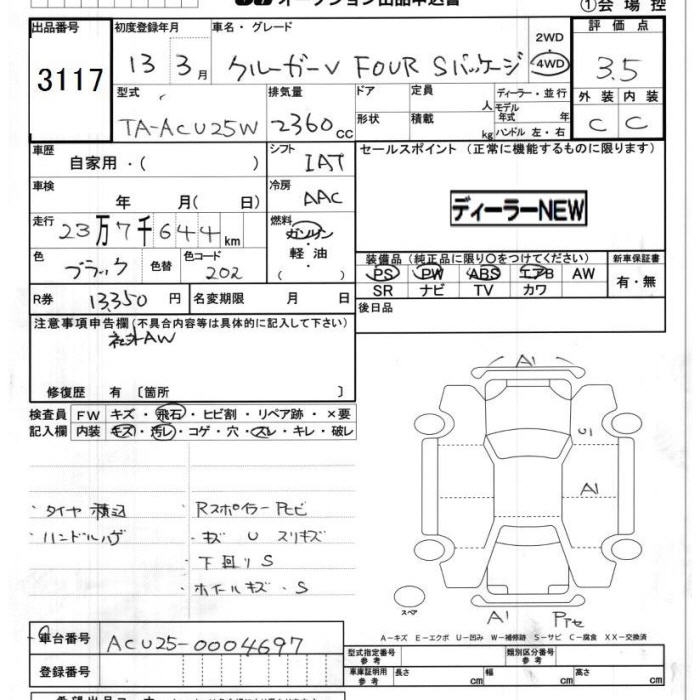 オークション出品申込書
①会場控
出品番号
3117
初度登録年月
13 3月
車名・グレード
クルーガーV FOUR Sパッケージ
2WD
・
4WD
評価点
3.5
外装 内装
C C
型式
TA-ACU25W
排気量
2360cc
ドア
形状
定員 人
積載 kg
ディーラー・並行
モデル年式 年
ハンドル 左・右
車歴
自家用・( )
シフト
IAT
セールスポイント (正常に機能するものに限ります)
ディーラーNEW
車検
年 月( 日)
冷房
AAC
走行
23万7千644km
燃料
ガソリン
・軽油・
( )
色
ブラック
色替
色コード
202
装備品(純正品に限り○をつけてください)
PS PW ABS エアB AW
SR ナビ TV カワ
新車保証書
有・無
R券 13,350円
名変期限 月 日
後日品
注意事項申告欄(不具合内容等は具体的に記入して下さい)
社外AW
修復歴 有〔箇所 〕
検査員
記入欄
FW キズ・飛石・ヒビ割・リペア跡・×要
内装 キズ・汚レ・コゲ・穴・スレ・キレ・破レ
・タイヤ積込
・ハンドルハゲ
・Rスポイラー Pセヒビ
・キズ U スリキズ
・下回りS
・ホイールキズ・S
A1
U1
A1
A1 Pアセ
スペア
A-キズ E-エクボ U-凹み W-補修跡 S-サビ C-腐食 XX-交換済
車台番号
ACU25-0004697
登録番号
型式指定番号
参考
類別区分番号
参考
車庫証明用
参考
長さ cm
幅 cm
高さ cm